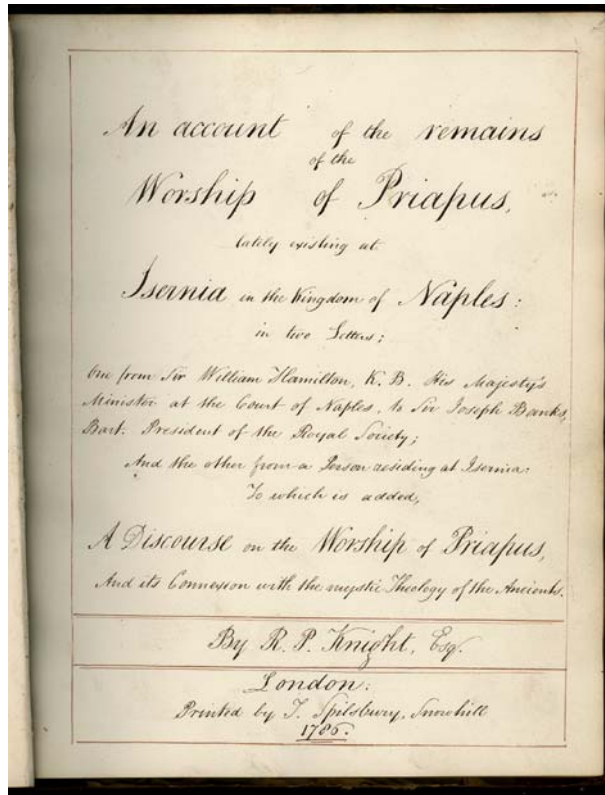 An account of the remains
of the
Worship of Priapus,
lately existing at
Isernia in the Kingdom of Naples:
in two Letters;
One from Sir William Hamilton, K. B. His Majesty's
Minister at the Court of Naples, to Sir Joseph Banks,
Bart. President of the Royal Society;
And the other from a Person residing at Isernia:
To which is added,
A Discourse on the Worship of Priapus,
And its Connexion with the mystic Theology of the Ancients.
By R. P. Knight, Esq.
London:
Printed by T. Spilsbury, Snowhill
1786.